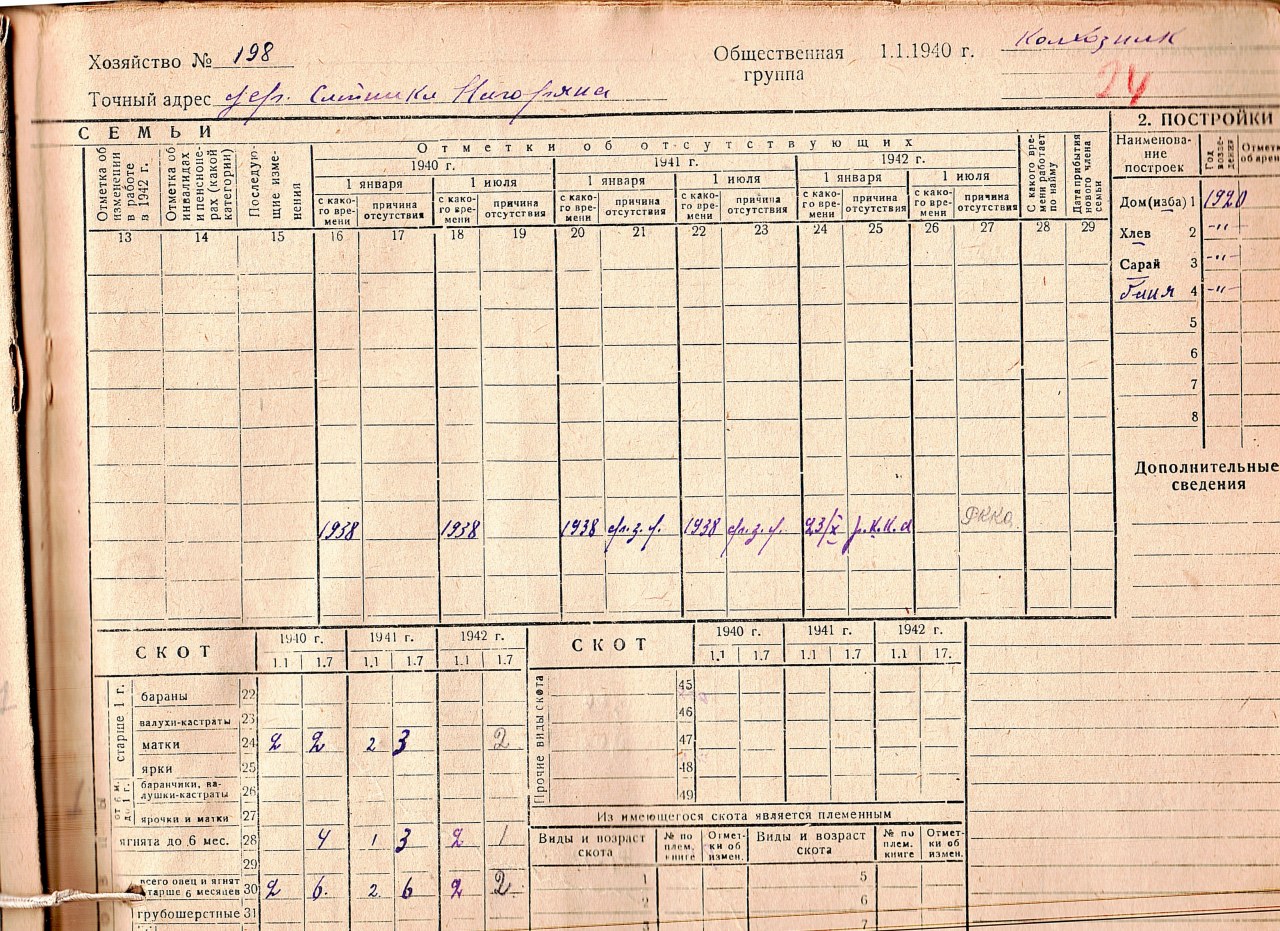 Хозяйство № 198
Общественная группа 1.1.1940 г. Колхозник
24
Точный адрес дер.
СЕМЬИ
Отметка об изменении в работе в 1942 г.
Отметка об инвалидах и пенсионерах (какой категории)
Последующие изменения
Отметки об отсутствующих
1940 г. 1941 г. 1942 г.
1 января 1 июля 1 января 1 июля 1 января 1 июля
с како-го вре-мени причина отсутствия с како-го вре-мени причина отсутствия с како-го вре-мени причина отсутствия с како-го вре-мени причина отсутствия с како-го вре-мени причина отсутствия с како-го вре-мени причина отсутствия
С какого вре-мени работает по найму
Дата прибытия нового члена семьи
13 14 15 16 17 18 19 20 21 22 23 24 25 26 27 28 29
1938 1938 1938 1938 23/X р.к.к.а РККА
2. ПОСТРОЙКИ
Наименова-ние построек
Год возве-дения
Отметк
Дом (изба) 1 1920
Хлев 2 -"-
Сарай 3 -"-
4 -"-
5
6
7
8
Дополнительные сведения
СКОТ 1940 г. 1941 г. 1942 г.
1.1 1.7 1.1 1.7 1.1 1.7
старше 1 г.
бараны 22
валухи-кастраты 23
матки 24 2 2 2 3 2
ярки 25
от 6 м. до 1 г.
баранчики, ва-лушки-кастраты 26
ярочки и матки 27
ягнята до 6 мес. 28 4 1 3 2 1
29
всего овец и ягнят старше 6 месяцев 30 2 6. 2. 6 2 2
грубошерстные 31
СКОТ 1940 г. 1941 г. 1942 г.
1.1 1.7 1.1 1.7 1.1 17.
Прочие виды скота
45
46
47
48
49
Из имеющегося скота является племенным
Виды и возраст скота № по плем. книге Отмет-ки об измен. Виды и возраст скота № по плем. книге Отмет-ки об измен.
1 5
2 6
3 7